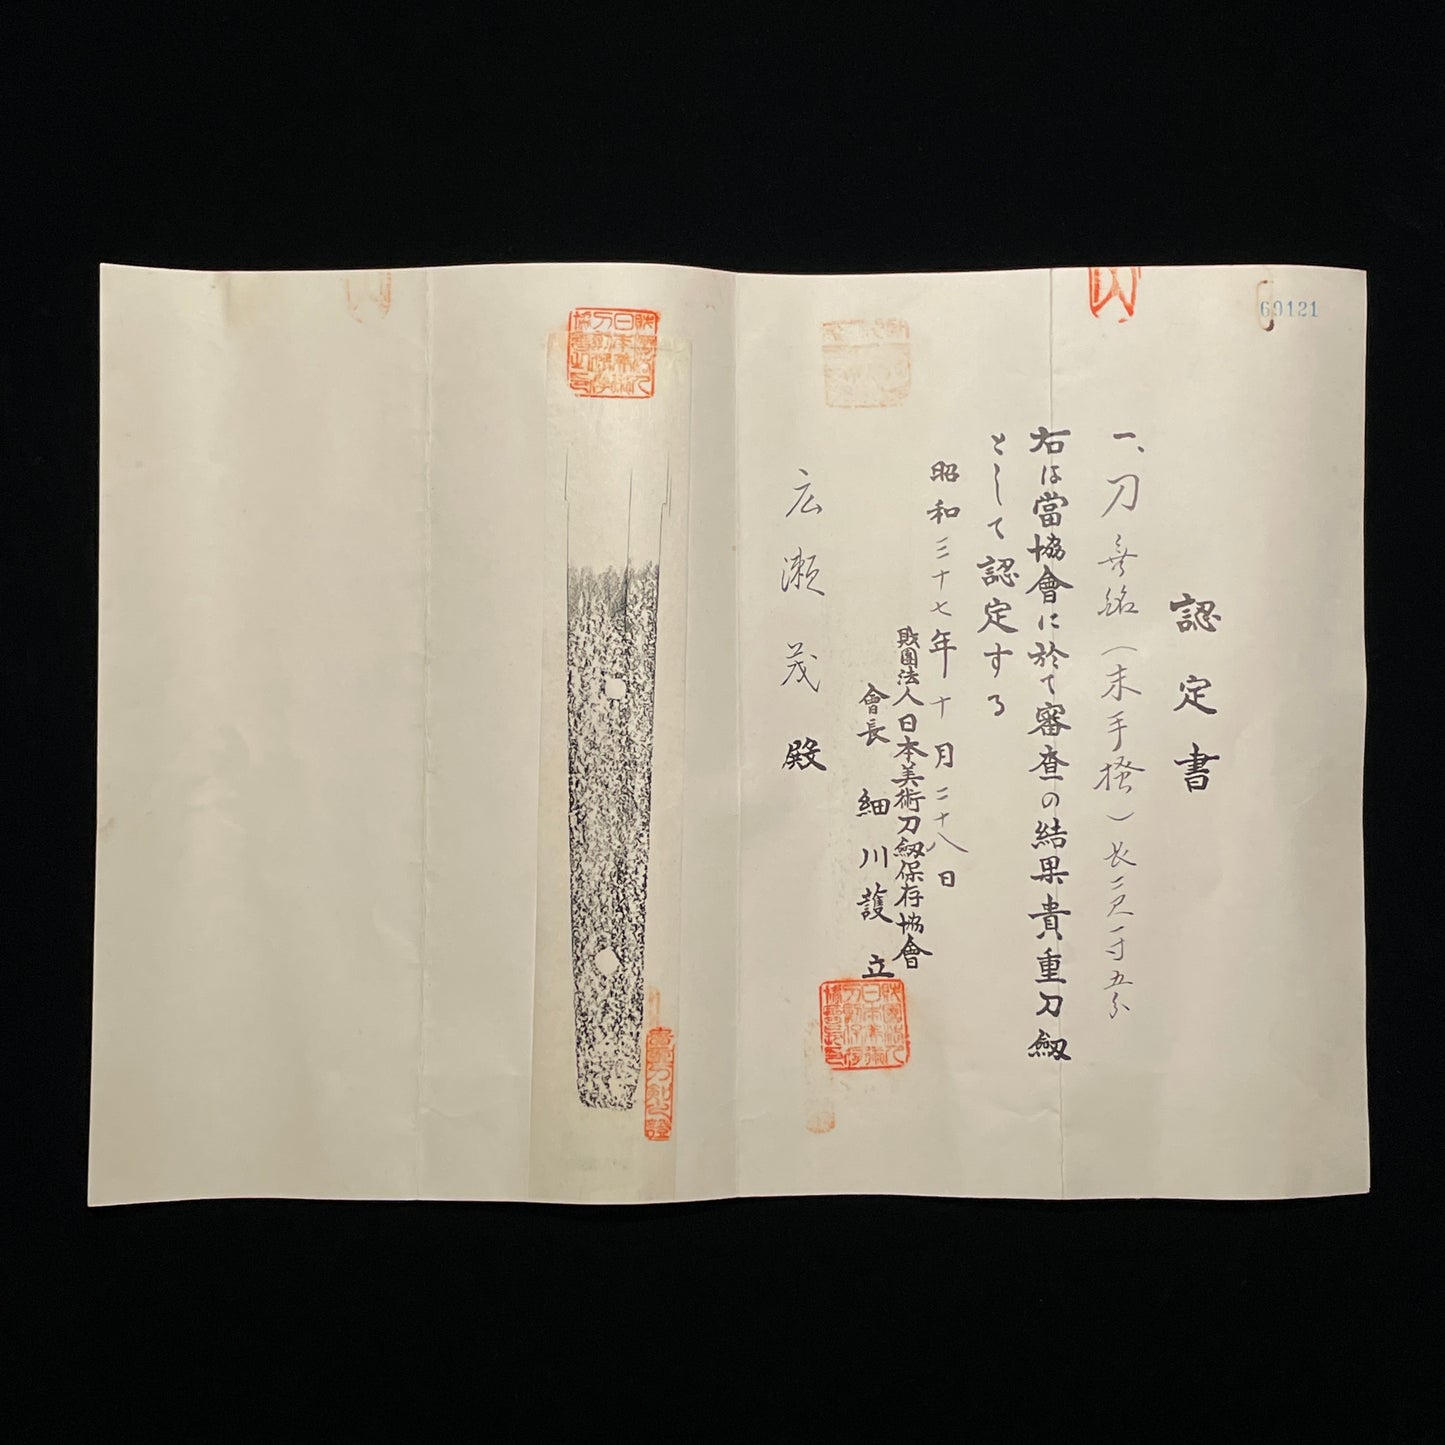 69121
認定書
一、刀 無銘（末手掻）長二尺一寸五分
右は當協會に於て審査の結果貴重刀劔
として認定する
昭和三十七年十月二十八日
財團法人日本美術刀劔保存協會
會長 細川護立
広瀬茂殿